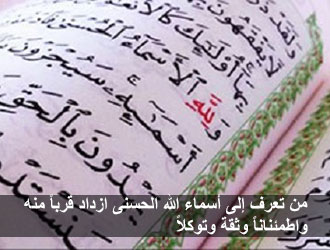 وَلَقَدْ
لَا يَفْقَهُونَ
بِهَا أُولَٰئِكَ كَالْأَنْعَامِ
وَلِلَّهِ الْأَسْمَاءُ الْحُسْنَىٰ
أَسْمَائِهِ سَيُجْزَوْنَ
يَهْدُونَ بِالْحَقِّ
من تعرف إلى أسماء الله الحسنى ازداد قرباً منه
واطمئناناً وثقة وتوكلاً